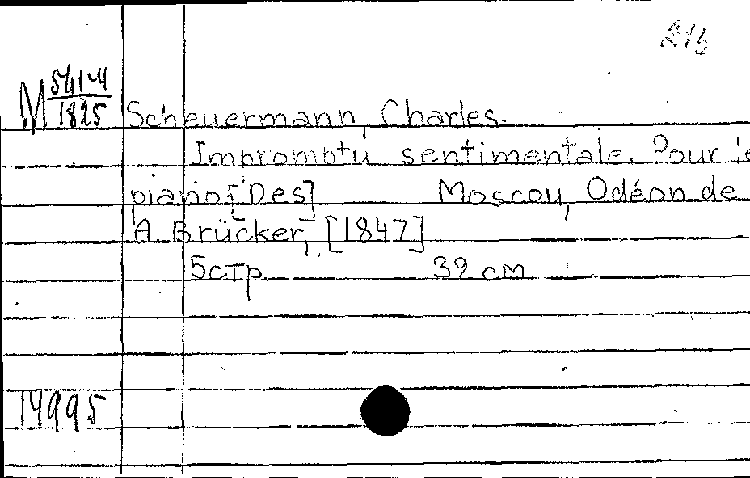 M 541-4
1825
Scheuermann, Charles.
Impromptu sentimentale. Pour le
piano. [Des] Moscou, Odéon de
A. Brücker, [1847]
5 стр 39 см
14995